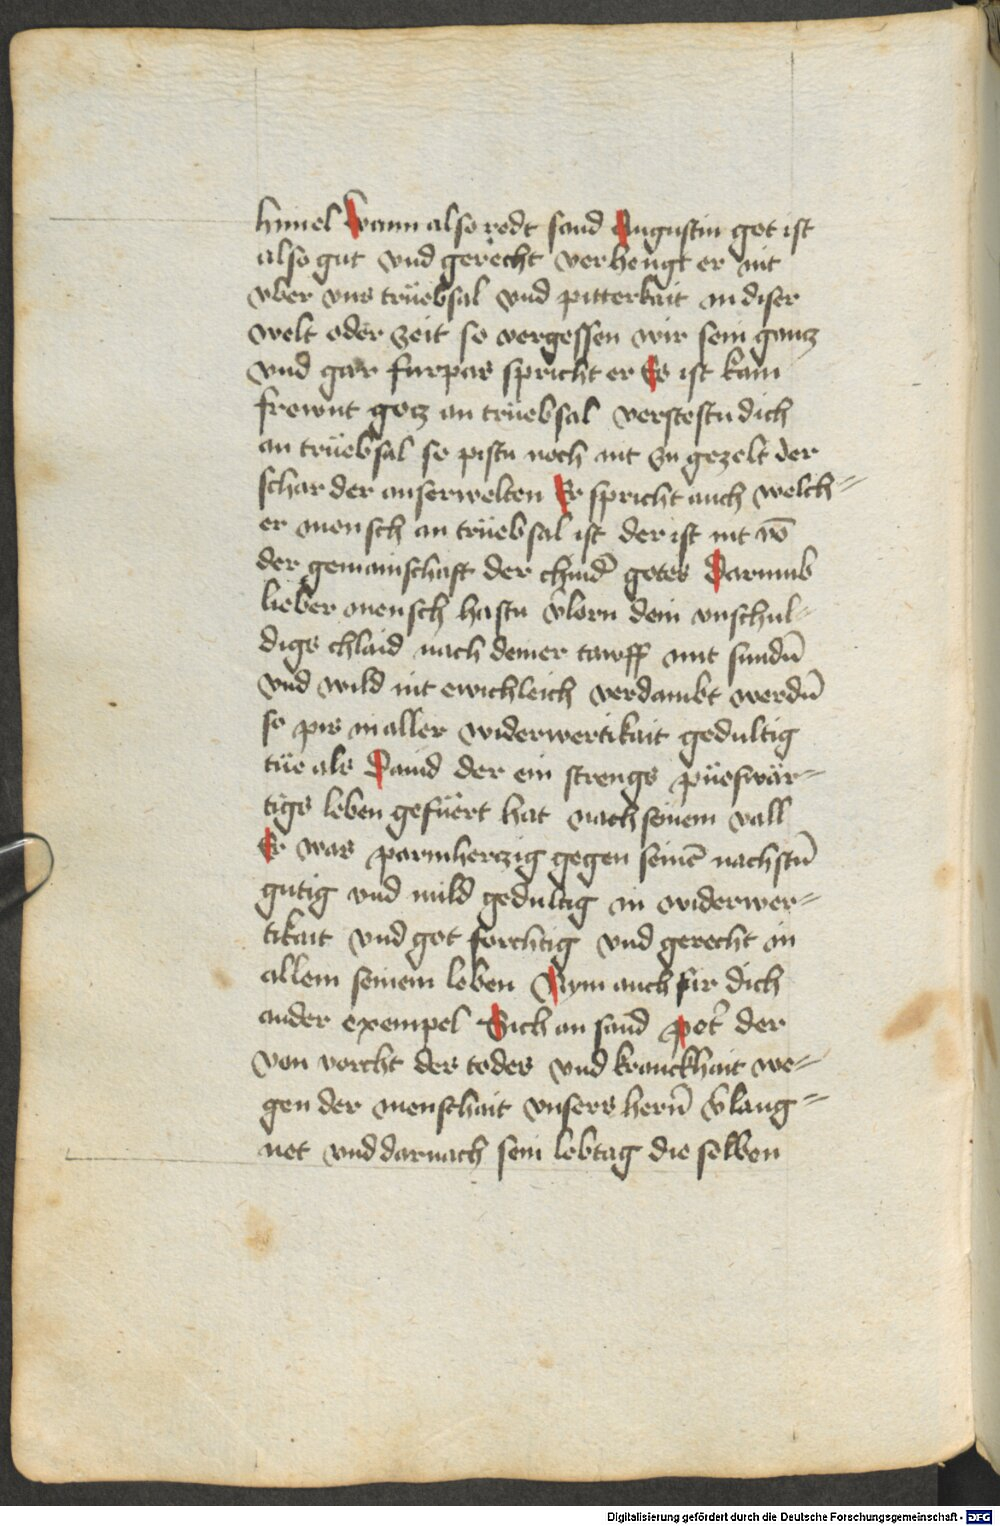 himel Wann also redt sand Augustin got ist
also gut vnd gerecht verhengt er nit
vber vns trüebsal vnd pitterkait in diser
welt oder zeit so vergessen wir sein gancz
vnd gar furpas spricht er Es ist kain
frewnt gocz an trüebsal verstestu dich
an trüebsal so pistu noch nit zu gezelt der
schar der auserwelten Er spricht auch welch=
er mensch an trüebsal ist der ist nit vō
der gemainschaft der chind̄ gotes Darumb
lieber mensch hastu v̄lorn dein vnschul=
digs chlaid nach deiner tawff mit sundn̄
vnd wild nit ewichleich verdambt werdn̄
so pis in aller widerwertikait gedultig
tüe als Dauid der ein strengs püeswär=
tigs leben gefüert hat nach seinem vall
Er was parmherczig gegen seinē nachstn̄
gutig vnd mild gedultig in widerwer=
tikait vnd got forchtig vnd gerecht in
allem seinem leben Nym auch fur dich
ander exempel Sich an sand pet̄ der
von vorcht des todes vnd kranckhait we=
gen der menschait vnsers hern̄ v̄laug=
net vnd darnach sein lebtag die selben
Digitalisierung gefördert durch die Deutsche Forschungsgemeinschaft - DFG